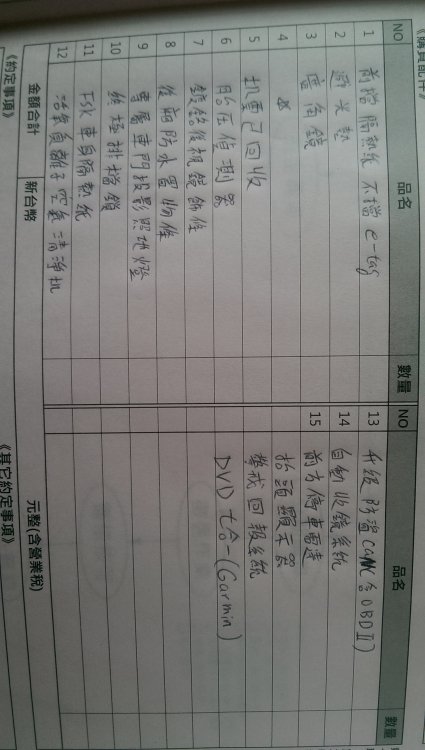 《購買配件》
NO 品名 數量
1 前擋隔熱紙 不擋 e-tag
2 避光墊
3 盲角鏡
4
5 扒雪己回收
6 胎压偵測器
7 鍍鉻後視鏡飾條
8 後廂防水置物
9 專屬車門投影照地燈
10 排檔鎖
11 FSK 車身隔熱紙
12 活氧負離子空氣清淨机
金額合計 新台幣 元整(含營業稅)
《約定事項》
NO 品名 數量
13 升級防盜 CAN(含OBD II)
14 自動收鏡系統
15 前方停車雷達
抬頭顯示器
尋找回報系統
DVD 七合一(Garmin)
《其它約定事項》